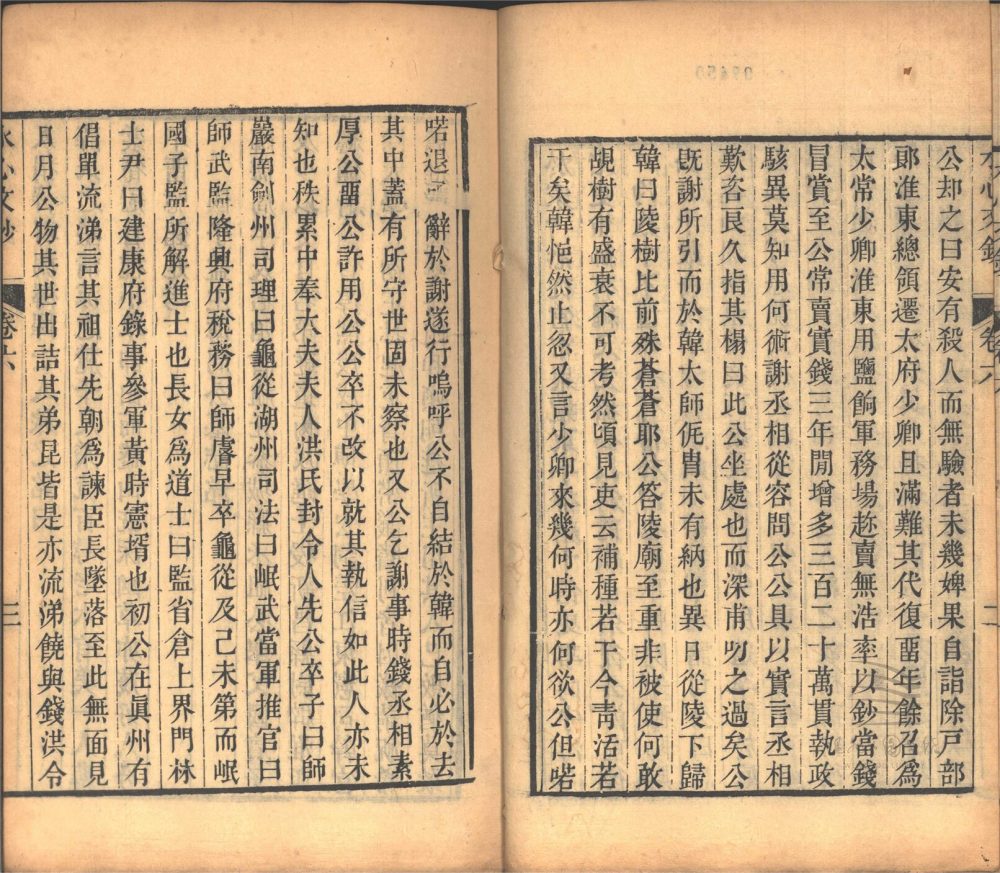 公却之曰安有殺人而無驗者未幾婢果自詣除戸部
郞淮東總領遷太府少卿且滿難其代復畱年餘召爲
太常少卿淮東用鹽餉軍務場趂賣無浩率以鈔當錢
冐賞至公常賣實錢三年閒增多三百二十萬貫執政
駭異莫知用何術謝丞相從容問公公具以實言丞相
歎咨良久指其榻曰此公坐處也而深甫叨之過矣公
旣謝所引而於韓太師侂胄未有納也異日從陵下歸
韓曰陵樹比前殊蒼蒼耶公答陵廟至重非被使何敢
覘樹有盛衰不可考然頃見吏云補種若干今靑活若
干矣韓怉然止忽又言少卿來幾何時亦何欲公但喏
二
喏退辭於謝遂行嗚呼公不自結於韓而自必於去
其中蓋有所守世固未察也又公乞謝事時錢丞相素
厚公畱公許用公公卒不改以就其執信如此人亦未
知也秩累中奉大夫夫人洪氏封令人先公卒子曰師
巖南劍州司理曰龜從湖州司法曰岷武當軍推官曰
師武監隆興府稅務曰師膺早卒龜從及己未第而岷
國子監所解進士也長女爲道士曰監省倉上界門林
士尹曰建康府錄事參軍黃時憲壻也初公在眞州有
倡單流涕言其祖仕先朝爲諫臣長墜落至此無面見
日月公物其世出詰其弟昆皆是亦流涕饒與錢洪令
水心文鈔
卷六
三